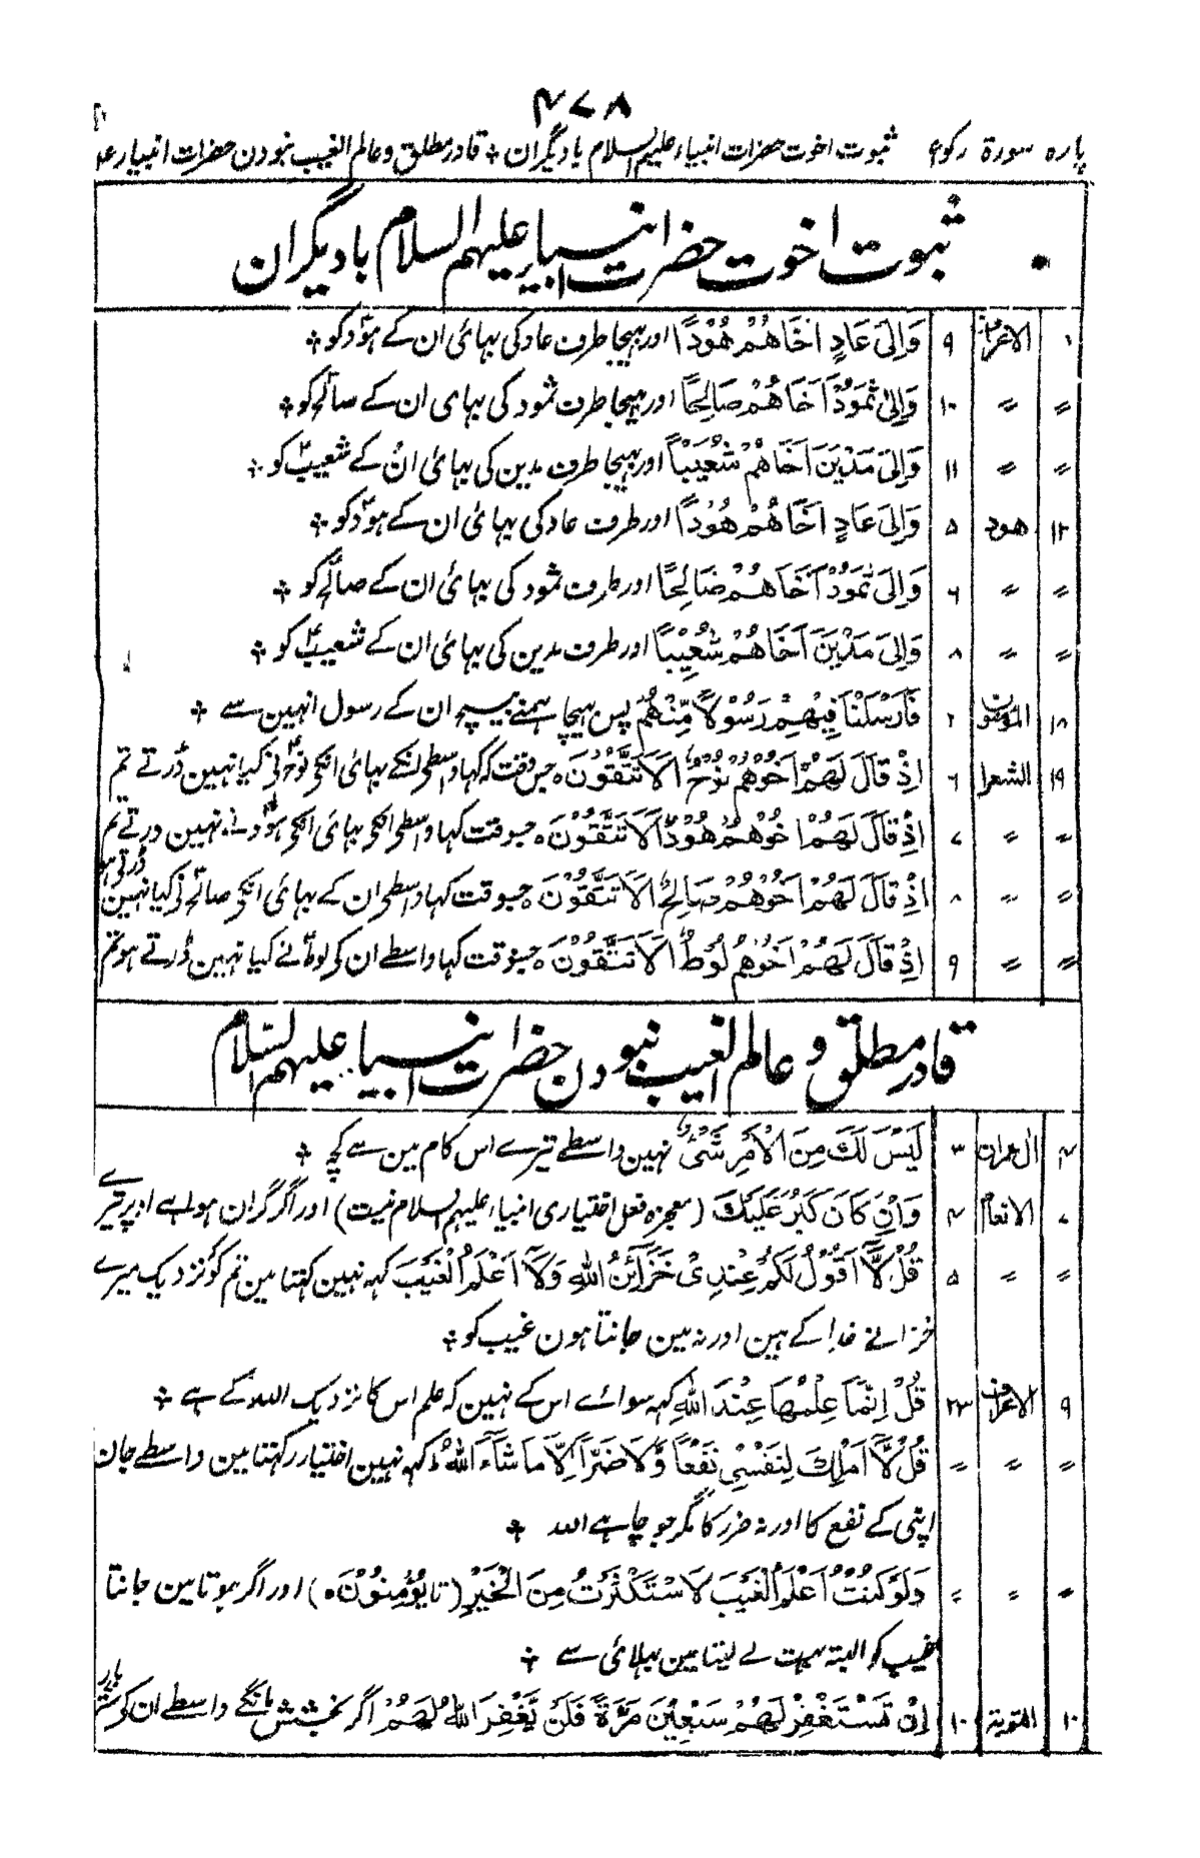 ۴۷۸
پارہ سورۃ رکوع ثبوت اخوت حضرات انبیاء علیہم السلام بادیگران ؞ قادر مطلق و عالم الغیب نبودن حضرات انبیاء
ثبوت اخوت حضرات انبیاء علیہم السلام بادیگران
۸ الاعراف ۹ وَاِلیٰ عَادٍ اَخَاهُمْ هُوْدًا اور بہیجا طرف عاد کی بہائی ان کے ہودؑ کو ؞
〃 〃 ۱۰ وَاِلیٰ ثَمُوْدَ اَخَاهُمْ صَالِحًا اور بہیجا طرف ثمود کی بہای ان کے صالحؑ کو ؞
〃 〃 ۱۱ وَاِلیٰ مَدْيَنَ اَخَاهُمْ شُعَيْبًا اور بہیجا طرف مدین کی بہائی ان کے شعیبؑ کو ؞
۱۲ ھود ۵ وَاِلیٰ عَادٍ اَخَاهُمْ هُوْدًا اور طرف عاد کی بہائی ان کے ہودؑ کو ؞
〃 〃 ۶ وَاِلیٰ ثَمُوْدَ اَخَاهُمْ صَالِحًا اور طرف ثمود کی بہائی ان کے صالحؑ کو ؞
〃 〃 ۸ وَاِلیٰ مَدْيَنَ اَخَاهُمْ شُعَيْبًا اور طرف مدین کی بہائی ان کے شعیبؑ کو ؞
۱۸ المؤمنون ۲ فَاَرْسَلْنَا فِيْهِمْ رَسُوْلًا مِّنْهُمْ پس بہیجا ہمنے بیچ ان کے رسول انہین سے ؞
۱۹ الشعرا ۶ اِذْ قَالَ لَهُمْ اَخُوْهُمْ نُوْحٌ اَلَا تَتَّقُوْنَ ہ جسوقت کہ کہا واسطے انکے بہائی انکی نوحؑ نی کیا نہین ڈرتے تم
〃 〃 ۷ اِذْ قَالَ لَهُمْ اَخُوْهُمْ هُوْدٌ اَلَا تَتَّقُوْنَ ہ جسوقت کہا واسطی انکی بہائی انکی ہودؑ نے نہین درتے تم
〃 〃 ۸ اِذْ قَالَ لَهُمْ اَخُوْهُمْ صَالِحٌ اَلَا تَتَّقُوْنَ ہ جسوقت کہا واسطی ان کے بہائی انکی صالحؑ نی کیا نہین ڈرتی ہو
〃 〃 ۹ اِذْ قَالَ لَهُمْ اَخُوْهُمْ لُوْطٌ اَلَا تَتَّقُوْنَ ہ جسوقت کہا واسطے ان کو لوطؑ نے کیا نہین ڈرتے ہو تم
قادر مطلق و عالم الغیب نبودن حضرات انبیاء علیہم السلام
۴ اٰل عمران ۳ لَيْسَ لَكَ مِنَ الْاَمْرِ شَیْءٌ نہین واسطے تیرے اس کام مین سے کچہ ؞
۷ الانعام ۴ وَاِنْ كَانَ كَبُرَ عَلَيْكَ (معجزہ فعل اختیاری انبیاء علیہم السلام نیست) اور اگر گران ہوا ہے اوپر تیرے
〃 〃 ۵ قُلْ لَّآ اَقُوْلُ لَكُمْ عِنْدِیْ خَزَآئِنُ اللّٰهِ وَلَآ اَعْلَمُ الْغَيْبَ کہہ نہین کہتا مین تم کو نزدیک میرے
خزانے خدا کے ہین اور نہ مین جانتا ہون غیب کو ؞
۹ الاعراف ۲۳ قُلْ اِنَّمَا عِلْمُهَا عِنْدَ اللّٰهِ کہہ سوائے اس کے نہین کہ علم اس کا نزدیک اللہ کے ہے ؞
〃 〃 〃 قُلْ لَّآ اَمْلِكُ لِنَفْسِیْ نَفْعًا وَّلَا ضَرًّا اِلَّا مَا شَآءَ اللّٰهُ کہہ نہین اختیار رکہتا مین واسطے جان
اپنی کے نفع کا اور نہ ضرر کا مگر جو چاہے اللہ ؞
〃 〃 〃 وَلَوْ كُنْتُ اَعْلَمُ الْغَيْبَ لَاسْتَكْثَرْتُ مِنَ الْخَيْرِ (تا یُؤْمِنُوْنَ ہ) اور اگر ہوتا مین جانتا
غیب کو البتہ بہت لے لیتا مین بہلائی سے ؞
۱۰ التوبۃ ۱۰ اِنْ تَسْتَغْفِرْ لَهُمْ سَبْعِيْنَ مَرَّةً فَلَنْ يَّغْفِرَ اللّٰهُ لَهُمْ اگر بخشش مانگے واسطے ان کو ستر بار